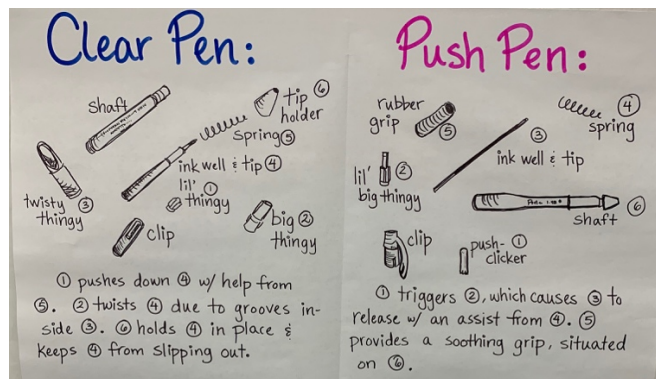 Clear Pen:
shaft
tip ⑥
holder
spring ⑤
ink well & tip ④
lil' ①
thingy
twisty ③
thingy
clip
big ②
thingy
① pushes down ④ w/ help from
⑤. ② twists ④ due to grooves in-
side ③. ⑥ holds ④ in place &
keeps ④ from slipping out.
Push Pen:
rubber
grip ⑤
④
spring
③
ink well & tip
lil' ②
big thingy
shaft ⑥
clip
push- ①
clicker
① triggers ②, which causes ③ to
release w/ an assist from ④. ⑤
provides a soothing grip, situated
on ⑥.